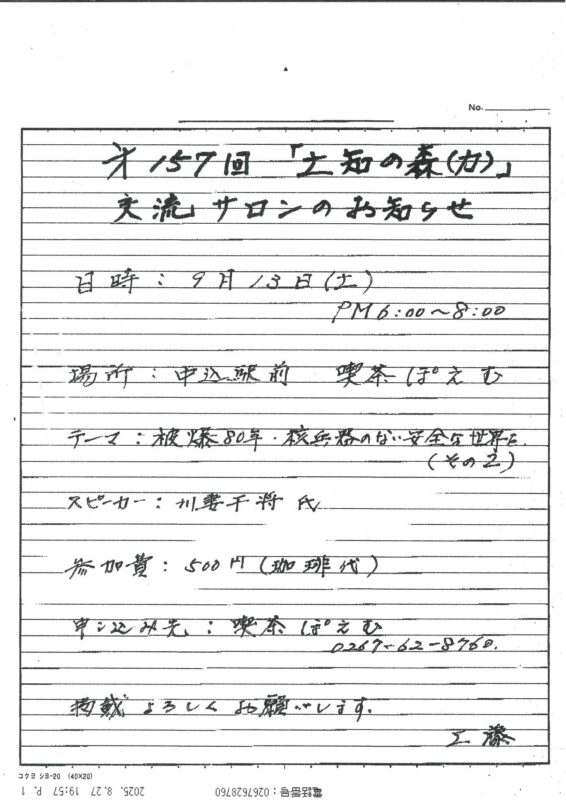 No.
才157回「土知の森(力)」
交流」サロンのお知らせ
日時：9月13日(土)
PM6:00～8:00
場所：中込駅前 喫茶ぽえむ
テーマ：被爆80年・核兵器のない安全な世界に
(その2)
スピーカー：川妻干将氏
参加費：500円(珈琲代)
申し込み先：喫茶ぽえむ
0267-62-8760.
掲載よろしくお願いします。
工藤
コクヨ シヨ-20 (40X20)
電話番号：0267628760
2025. 8.27 19:57 P. 1